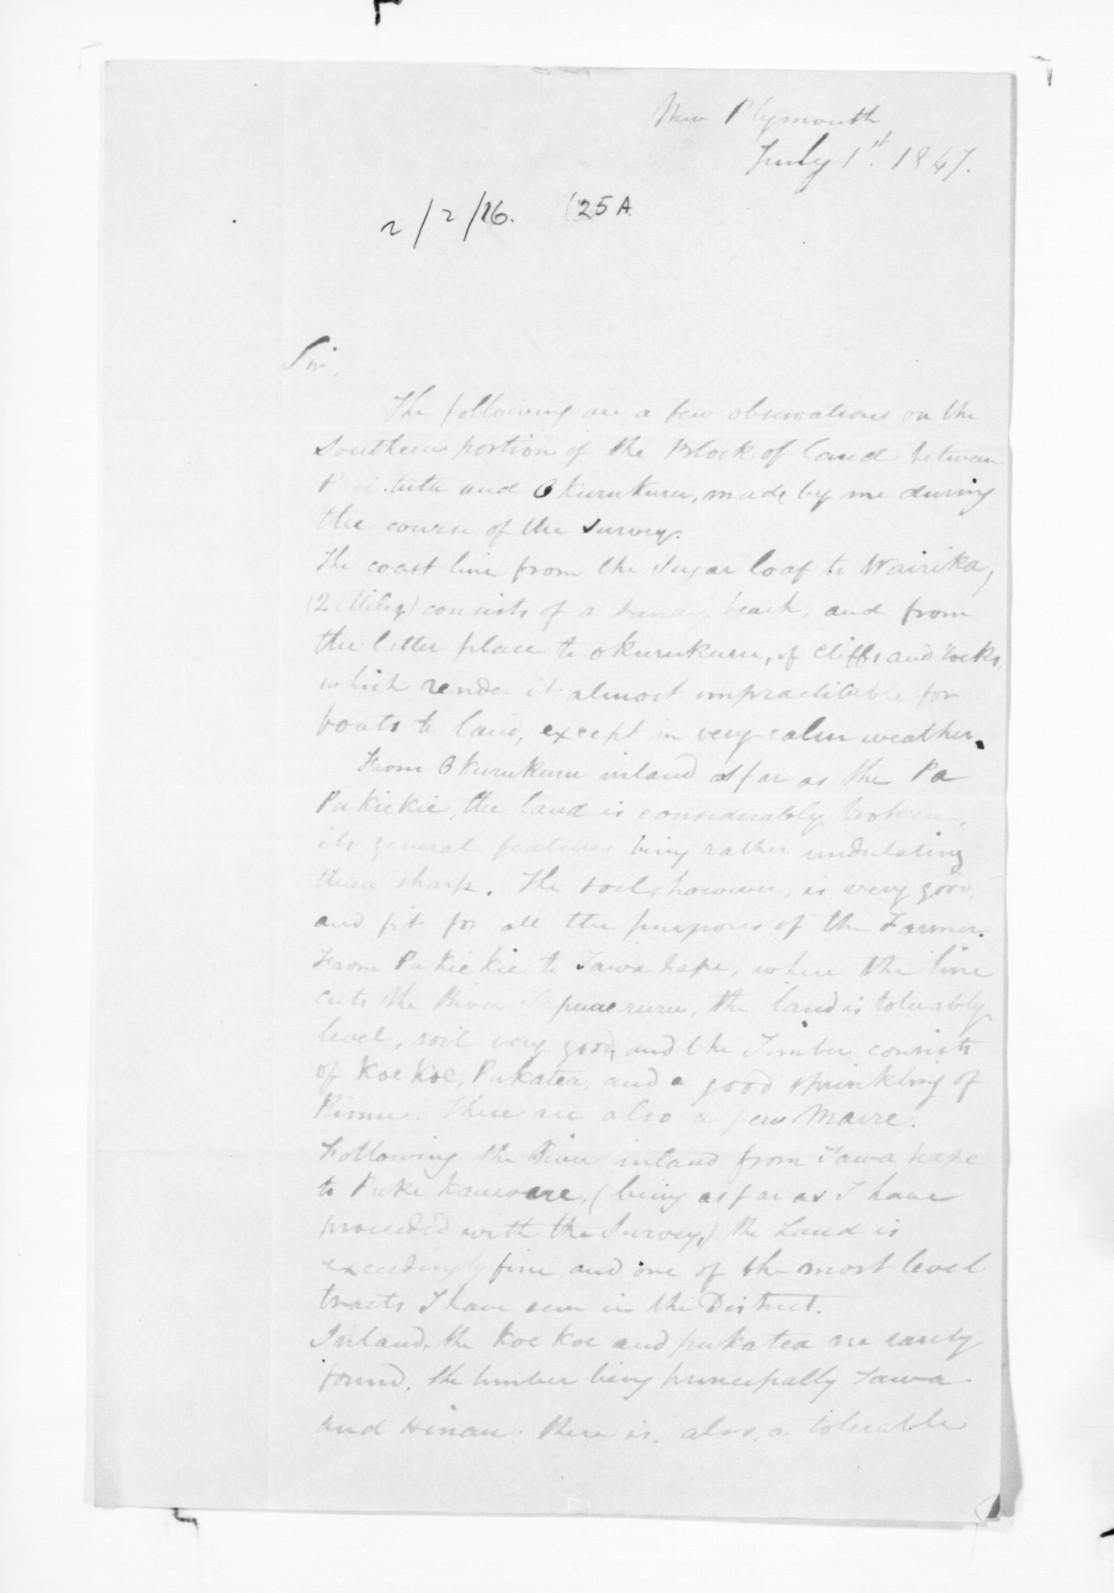 New Plymouth
July 1st. 1847.
2/2/16. (25A.
Sir,
The following are a few observations on the
Southern portion of the Block of land between
and Okurukuru, made by me during
the course of the Survey.
The coast line from the Sugar loaf to Wairika,
(2 Miles) consists of a sandy beach, and from
the latter place to Okurukuru, of cliffs and rocks,
which render it almost impracticable for
boats to land, except in very calm weather.
From Okurukuru inland as far as the Pa
Pukiekie, the land is considerably broken,
its general features being rather undulating
than sharp. The soil, however, is very good,
and fit for all the purposes of the Farmer.
From Pukiekie to Tawa hape, where the line
cuts the River Tapuaeruru, the land is tolerably
level, soil very good, and the Timber consists
of Koe Koe, Pukatea, and a good sprinkling of
Rimu. There are also a few Maire.
Following the River inland from Tawa hape
to Puke (being as far as I have
proceeded with the Survey,) the Land is
exceedingly fine and one of the most level
tracts I have seen in the District.
Inland, the Koe Koe and pukatea are rarely
found, the timber being principally Tawa
and Hinau. There is, also, a tolerable